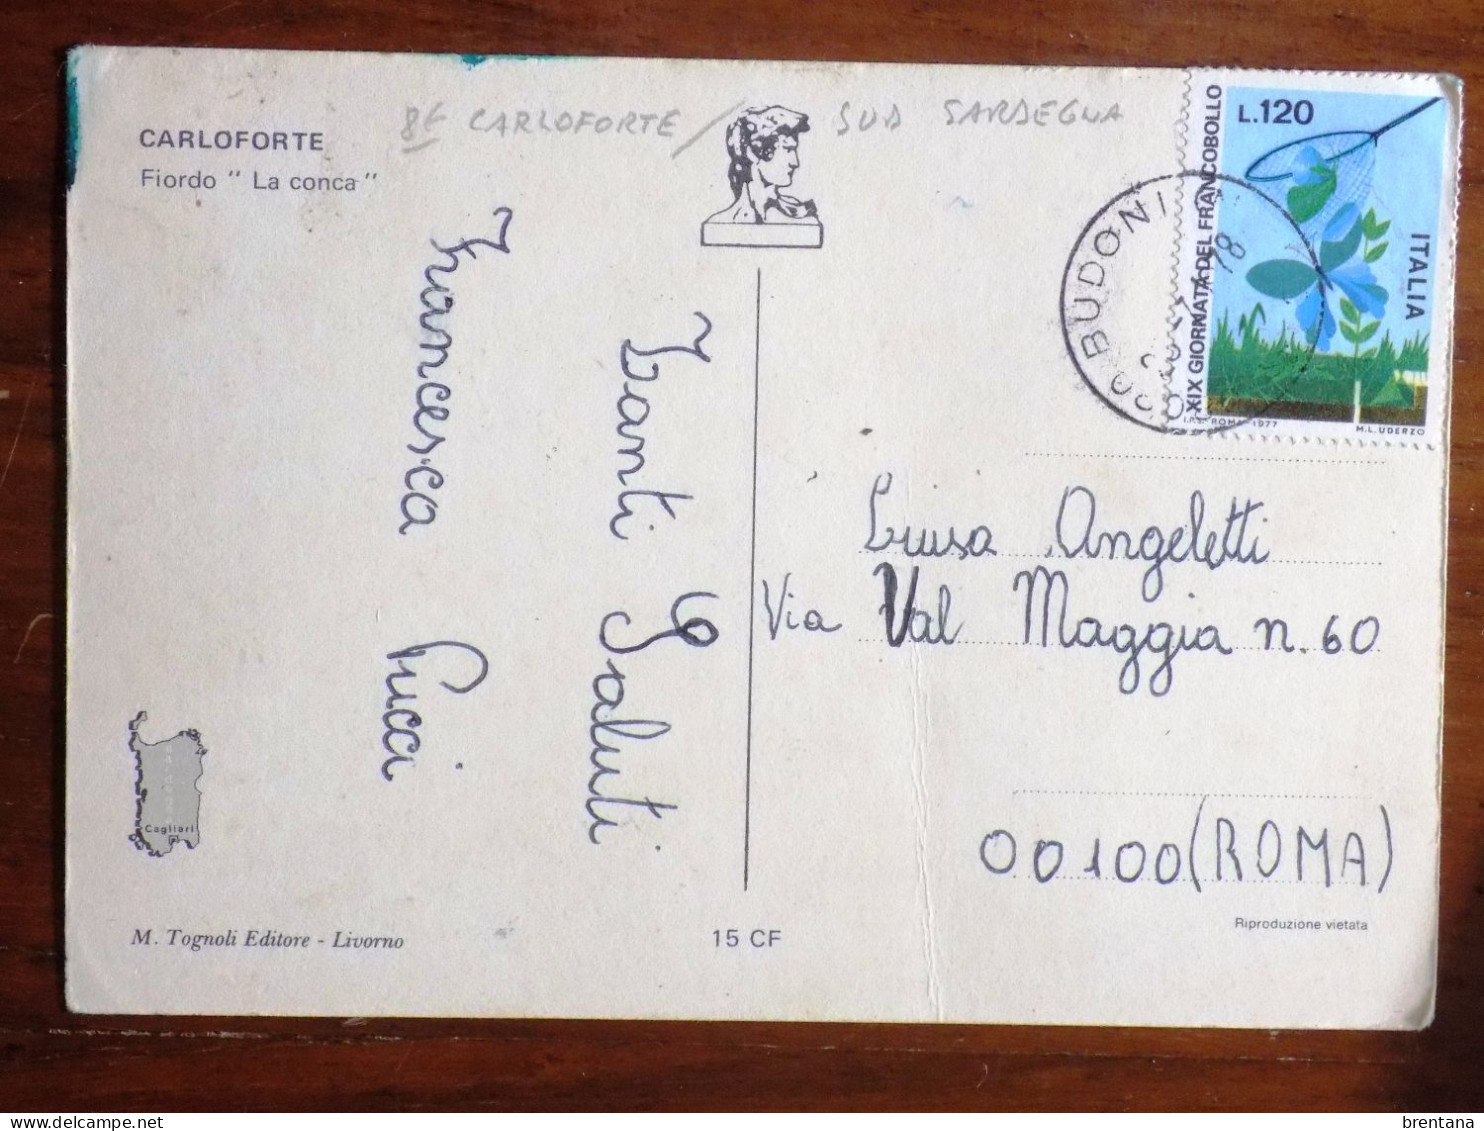 8€ CARLOFORTE / SUD SARDEGNA
CARLOFORTE
Fiordo " La conca "
Tanti Saluti
Francesca Pucci
Cagliari
M. Tognoli Editore - Livorno
15 CF
L.120
XIX GIORNATA DEL FRANCOBOLLO
ITALIA
I.P.S. ROMA-1977
M.L. UDERZO
BUDONI
78
Luisa Angeletti
Via Val Maggia n. 60
00100 (ROMA)
Riproduzione vietata
brentana